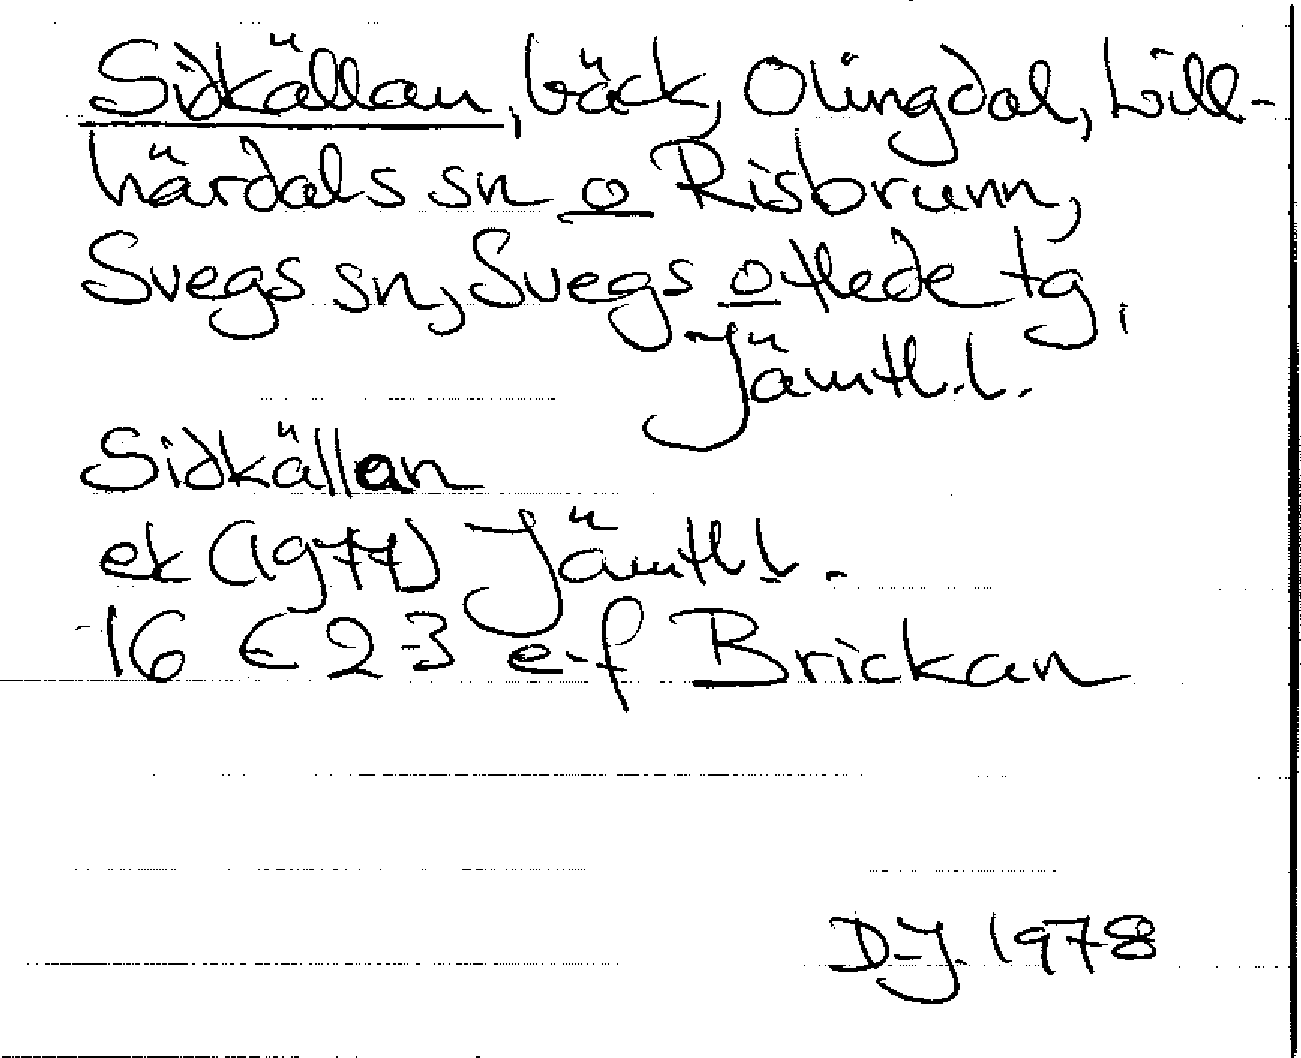 Sidkällan, bäck, Olingdal, Lill-
härdals sn o Risbrunn,
Svegs sn, Svegs o Hede tg,
Jämtl. l.
Sidkällan
ek (1977) Jämtl l.
16 E 2-3 e-f Brickan
D-J. 1978